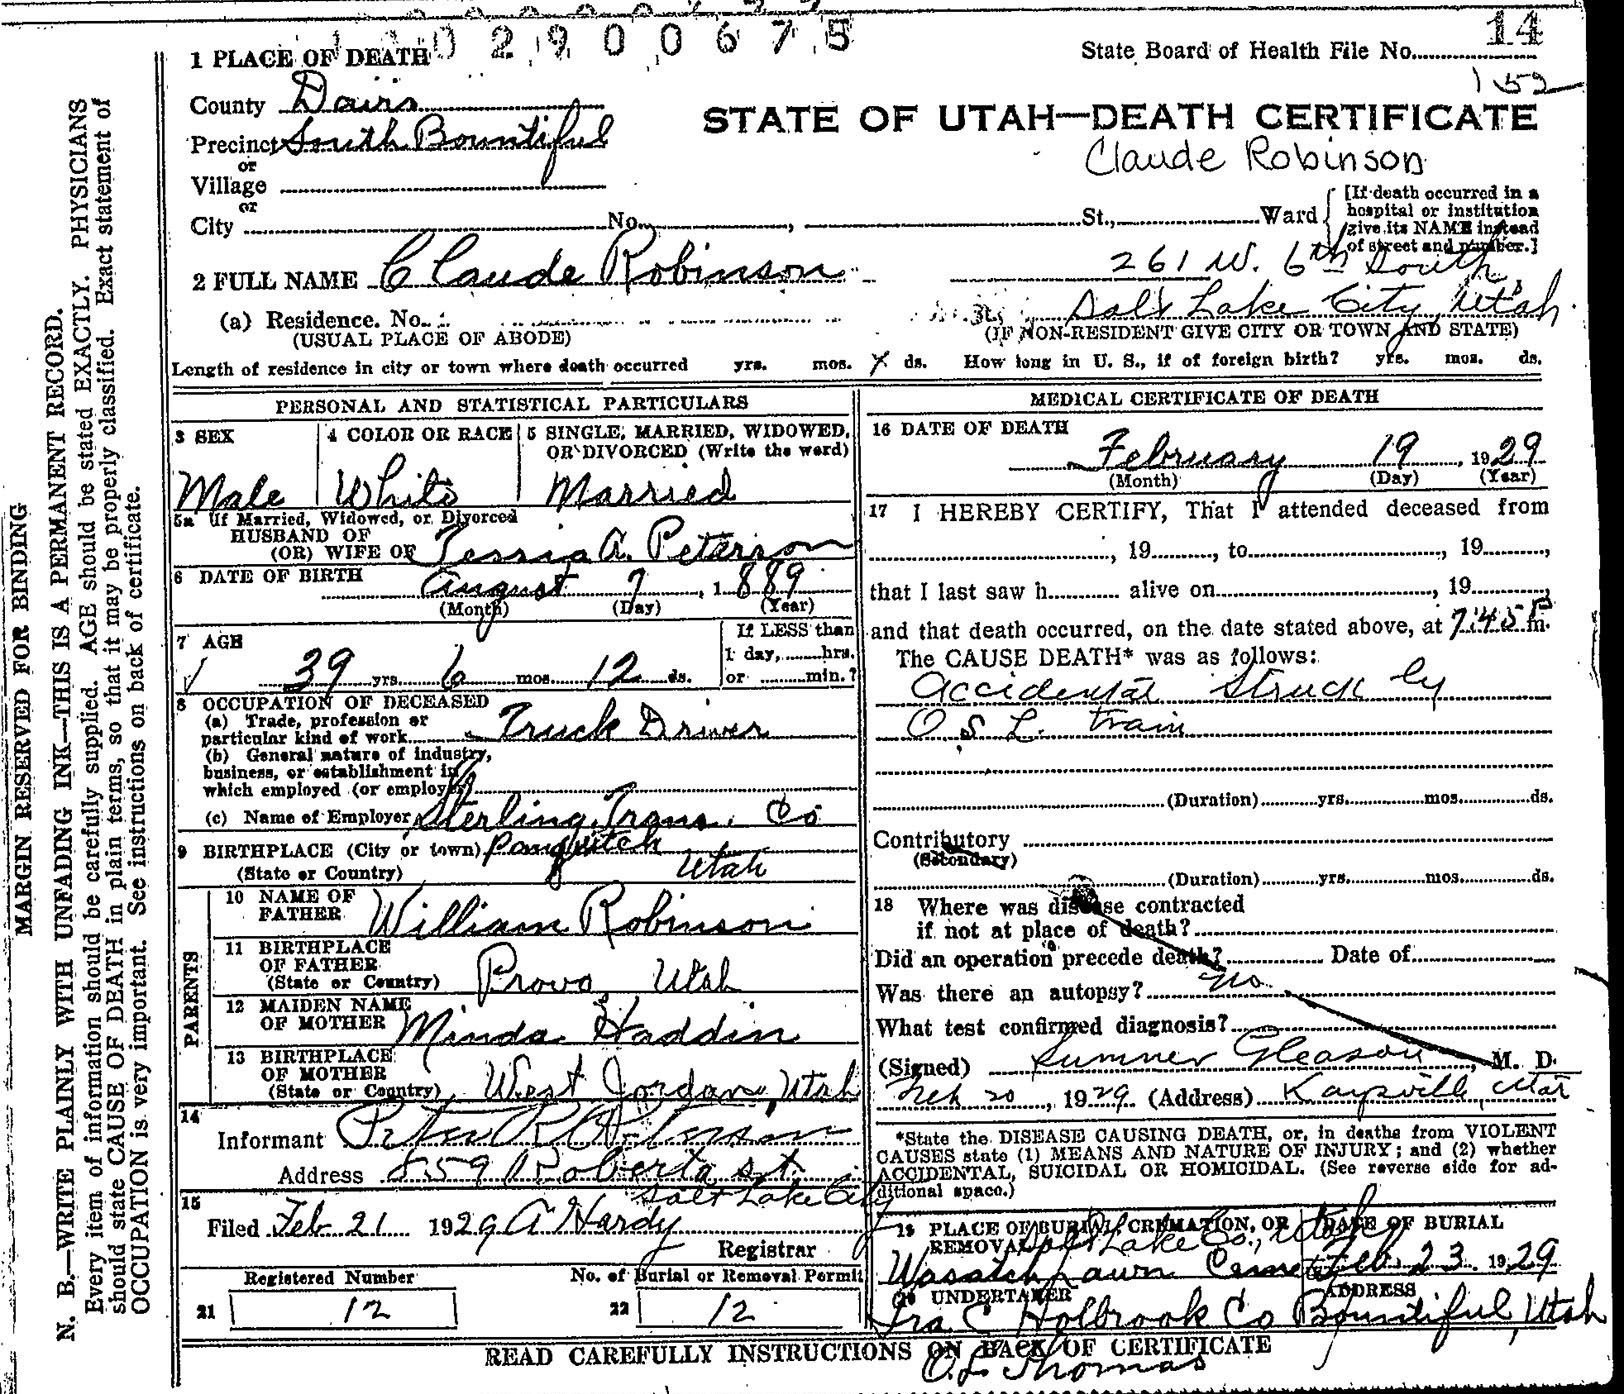 02900675
14
1 PLACE OF DEATH
State Board of Health File No.
152
County Davis
STATE OF UTAH—DEATH CERTIFICATE
Precinct South Bountiful
Claude Robinson
or
Village
or
City No. , St., Ward
[If death occurred in a
hospital or institution
give its NAME instead
of street and number.]
2 FULL NAME Claude Robinson
261 W. 6th South
(a) Residence. No. Salt Lake City, Utah.
(USUAL PLACE OF ABODE) (IF NON-RESIDENT GIVE CITY OR TOWN AND STATE)
Length of residence in city or town where death occurred yrs. mos. ds. How long in U. S., if of foreign birth? yrs. mos. ds.
PERSONAL AND STATISTICAL PARTICULARS
3 SEX
Male
4 COLOR OR RACE
White
5 SINGLE, MARRIED, WIDOWED,
OR DIVORCED (Write the word)
Married
5a If Married, Widowed, or Divorced
HUSBAND OF
(OR) WIFE OF A. Peterson
6 DATE OF BIRTH August 7, 1889
(Month) (Day) (Year)
7 AGE
39 yrs 6 mos 12 ds.
If LESS than
1 day, hrs.
or min.?
8 OCCUPATION OF DECEASED
(a) Trade, profession or
particular kind of work Truck Driver
(b) General nature of industry,
business, or establishment in
which employed (or employer)
(c) Name of Employer Sterling Trans. Co
9 BIRTHPLACE (City or town) Panguitch
(State or Country) Utah
PARENTS
10 NAME OF
FATHER William Robinson
11 BIRTHPLACE
OF FATHER
(State or Country) Provo Utah
12 MAIDEN NAME
OF MOTHER Minda Haddin
13 BIRTHPLACE
OF MOTHER
(State or Country) West Jordan, Utah
14
Informant Peter
Address 559 Roberta st.
Salt Lake City
15
Filed Feb 21 1929 A Hardy
Registrar
Registered Number
21 12
No. of Burial or Removal Permit
22 12
MEDICAL CERTIFICATE OF DEATH
16 DATE OF DEATH
February 19, 1929
(Month) (Day) (Year)
17 I HEREBY CERTIFY, That I attended deceased from
, 19 , to , 19 ,
that I last saw h alive on , 19 ,
and that death occurred, on the date stated above, at 7:45 P m.
The CAUSE DEATH* was as follows:
Accidental Struck by
O. S. L. train
(Duration) yrs. mos. ds.
Contributory
(Secondary)
(Duration) yrs. mos. ds.
18 Where was disease contracted
if not at place of death?
Did an operation precede death? Date of
Was there an autopsy? No
What test confirmed diagnosis?
(Signed) Sumner Gleason, M. D.
Feb 20, 1929 (Address) Kaysville, Utah
*State the DISEASE CAUSING DEATH, or, in deaths from VIOLENT
CAUSES state (1) MEANS AND NATURE OF INJURY; and (2) whether
ACCIDENTAL, SUICIDAL OR HOMICIDAL. (See reverse side for ad-
ditional space.)
19 PLACE OF BURIAL, CREMATION, OR
REMOVAL Salt Lake Co., Utah
Wasatch Lawn Cemetery
DATE OF BURIAL
Feb 23 1929
20 UNDERTAKER
Ira C Holbrook Co
ADDRESS
Bountiful, Utah
READ CAREFULLY INSTRUCTIONS ON BACK OF CERTIFICATE
O. L. Thomas
MARGIN RESERVED FOR BINDING
N. B.—WRITE PLAINLY WITH UNFADING INK—THIS IS A PERMANENT RECORD.
Every item of information should be carefully supplied. AGE should be stated EXACTLY. PHYSICIANS
should state CAUSE OF DEATH in plain terms, so that it may be properly classified. Exact statement of
OCCUPATION is very important. See instructions on back of certificate.